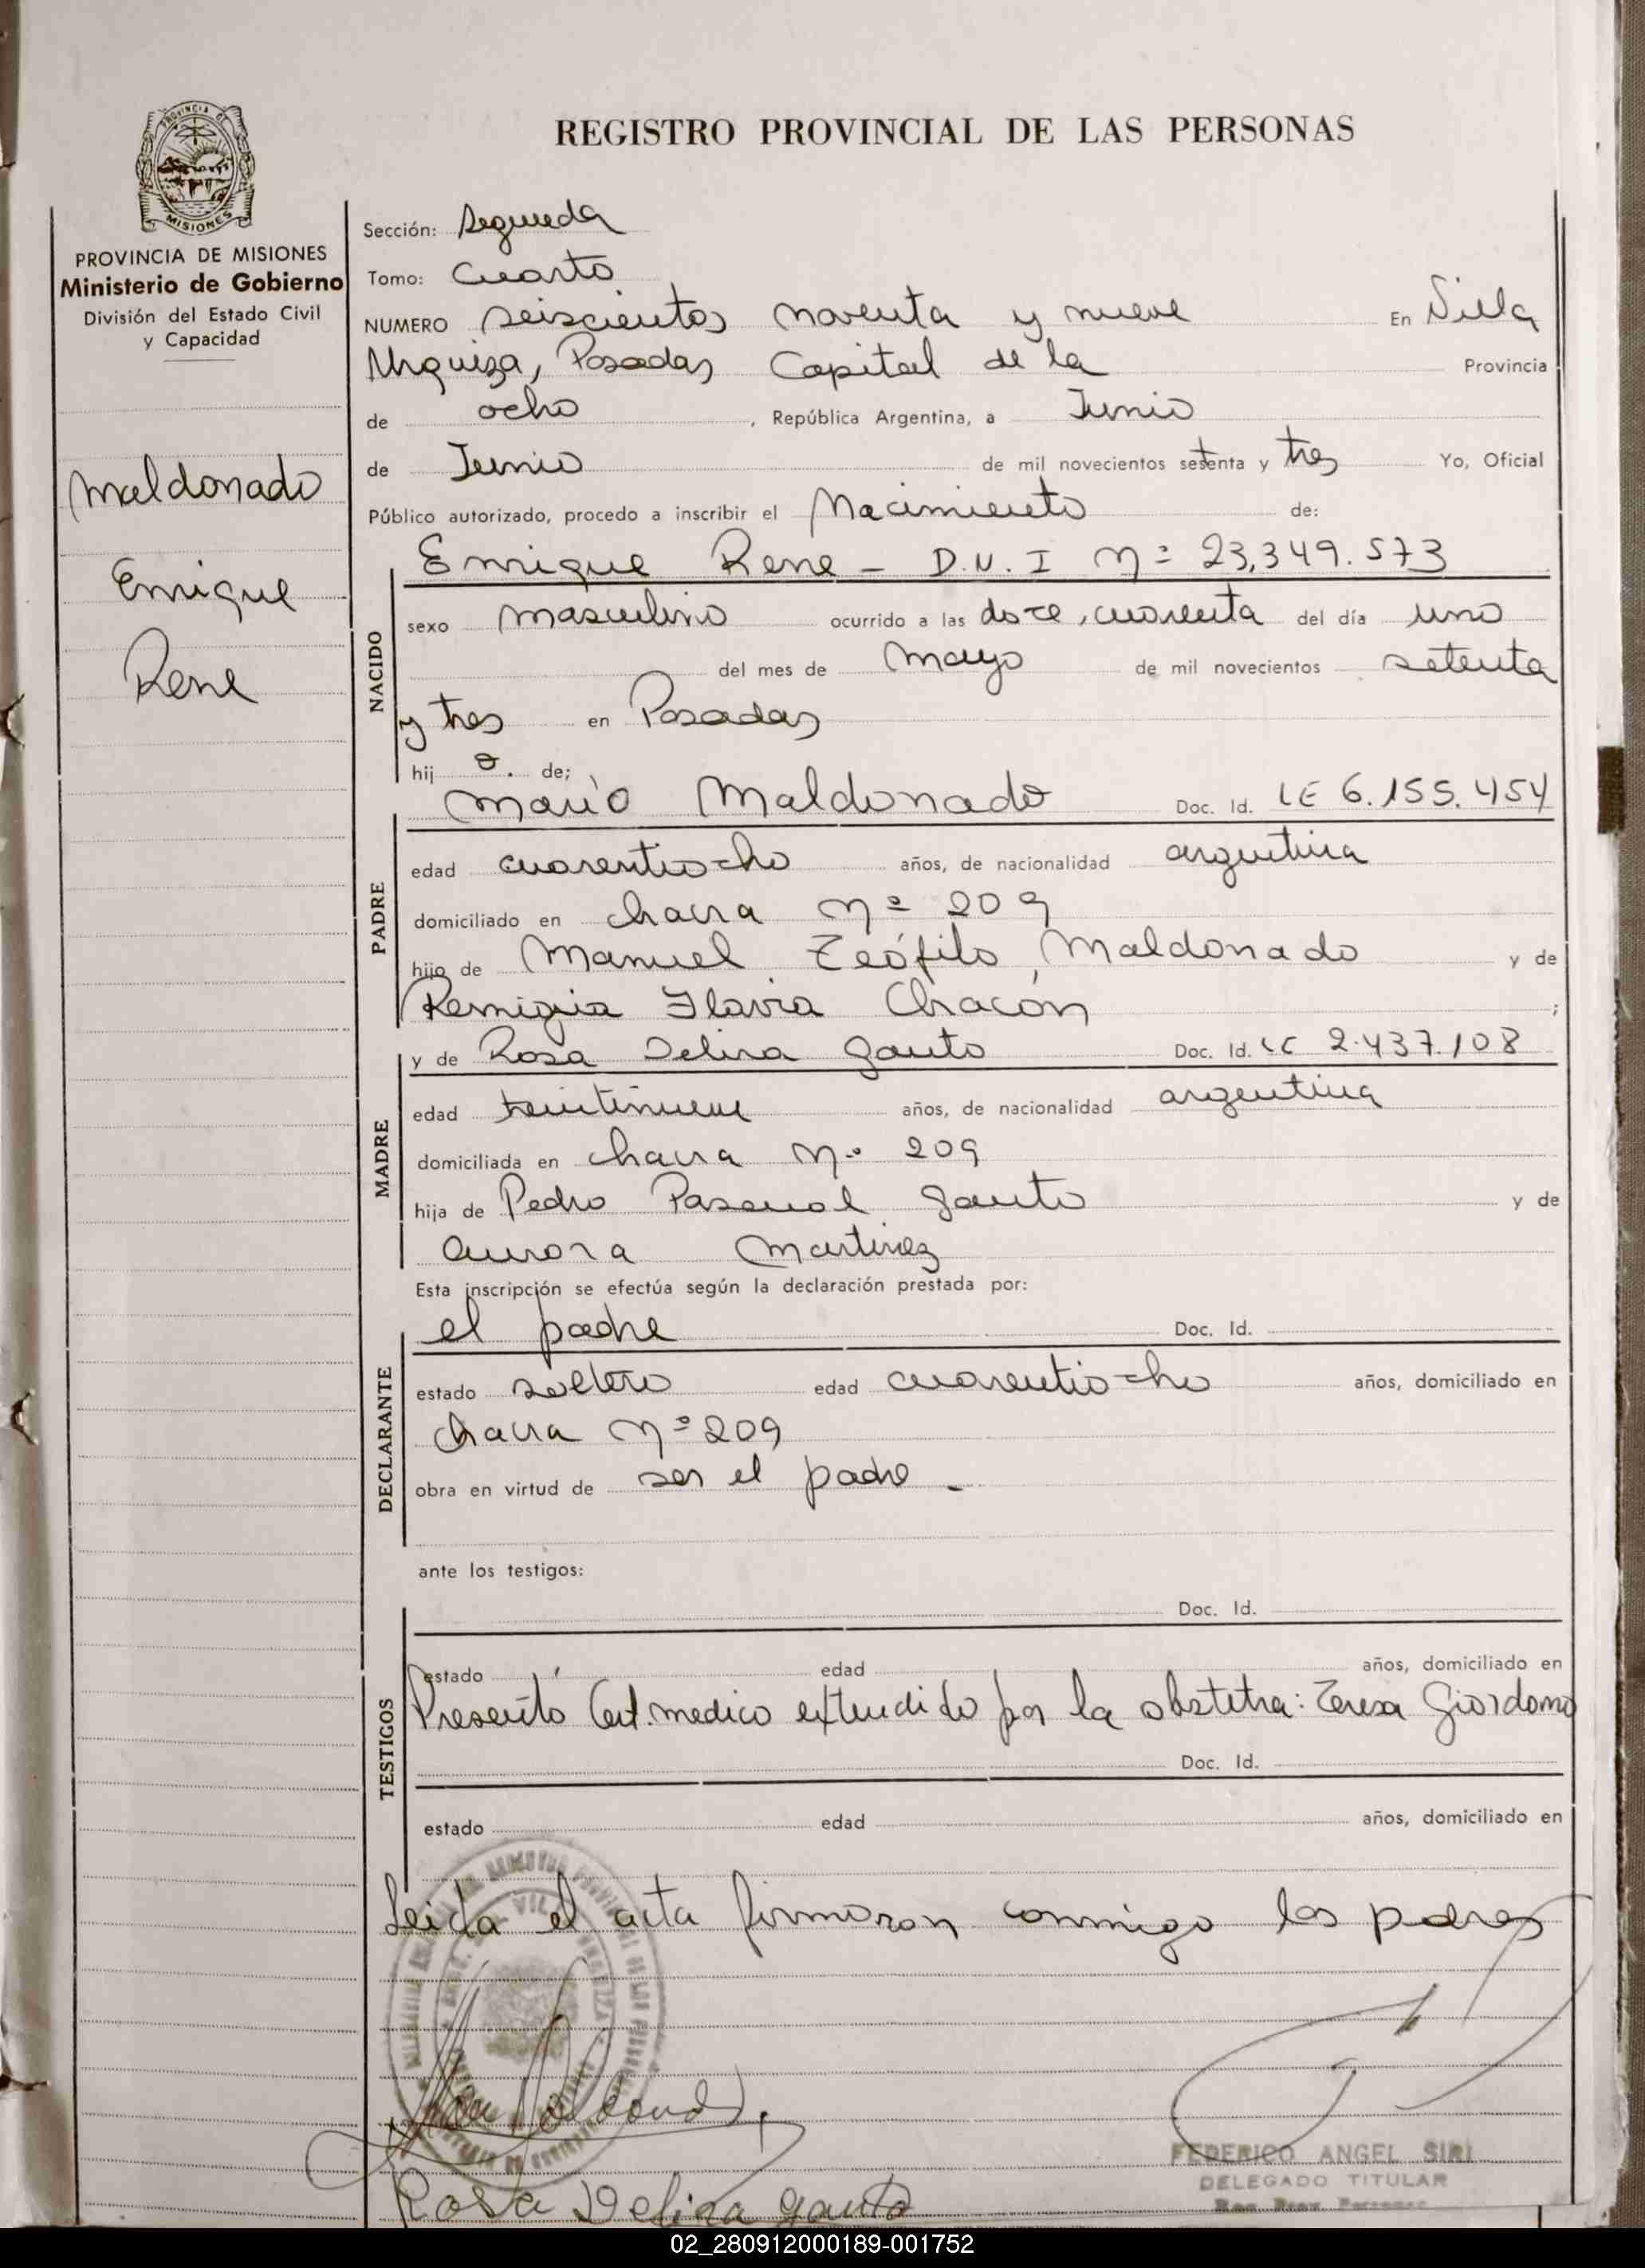 REGISTRO PROVINCIAL DE LAS PERSONAS
PROVINCIA DE
MISIONES
PROVINCIA DE MISIONES
Ministerio de Gobierno
División del Estado Civil
y Capacidad
Maldonado
Enrique
Rene
Sección: Segunda
Tomo: Cuarto
NUMERO seiscientos noventa y nueve En Villa
Urquiza, Posadas Capital de la Provincia
de ocho, República Argentina, a Junio
de Junio de mil novecientos setenta y tres Yo, Oficial
Público autorizado, procedo a inscribir el Nacimiento de:
Enrique Rene - D.N.I nº 23,349.573
NACIDO
sexo masculino ocurrido a las doce, cuarenta del día uno
del mes de Mayo de mil novecientos setenta
y tres en Posadas
hij o. de;
Mario Maldonado Doc. Id. LE 6.155.454
PADRE
edad cuarentiocho años, de nacionalidad argentina
domiciliado en chacra nº 209
hijo de Manuel Teófilo Maldonado y de
Remigia Flavia Chacón ;
y de Rosa Delina Gauto Doc. Id. LC 2.437.108
MADRE
edad treintinueve años, de nacionalidad argentina
domiciliada en chacra nº 209
hija de Pedro Pascual Gauto y de
Aurora Martinez
Esta inscripción se efectúa según la declaración prestada por:
el padre Doc. Id.
DECLARANTE
estado soltero edad cuarentiocho años, domiciliado en
chacra nº 209
obra en virtud de ser el padre -
ante los testigos:
Doc. Id.
TESTIGOS
estado edad años, domiciliado en
Presentó Cert. medico extendido por la obstetra: Teresa Giordano
Doc. Id.
estado edad años, domiciliado en
Leida el acta firmaron conmigo los padres
Rosa Delina Gauto
FEDERICO ANGEL SIRI
DELEGADO TITULAR
02_280912000189-001752